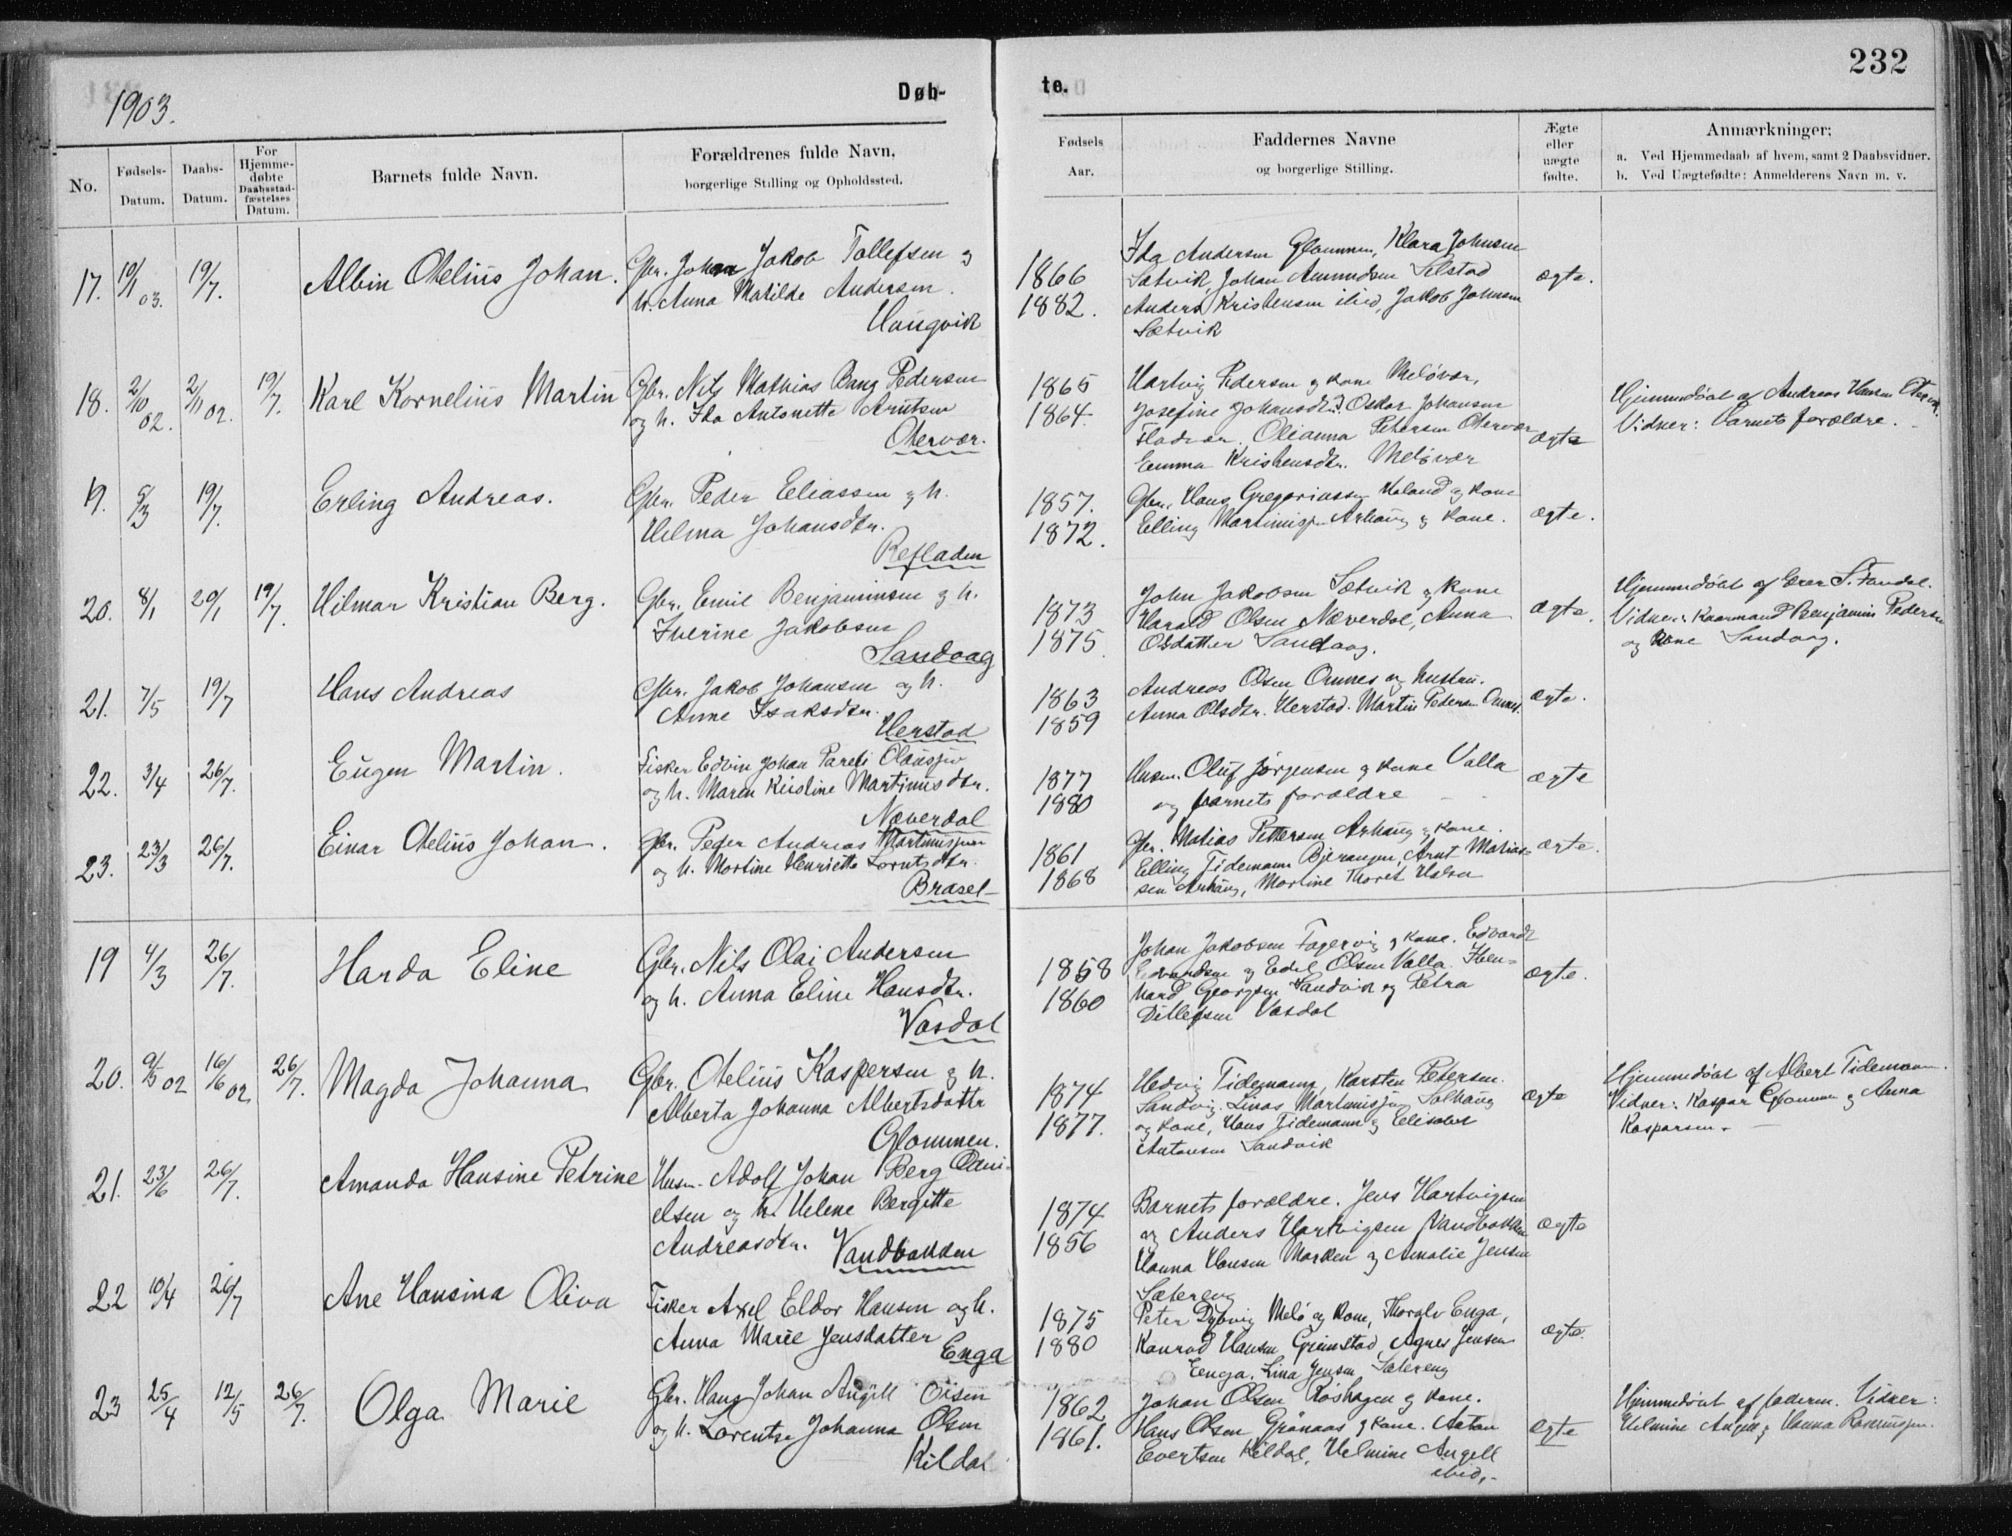 1903.
Døb-
te.
232
No.
Fødsels-
Datum.
Daabs-
Datum.
For
Hjemme-
døbte
Daabsstad-
fæstelses
Datum.
Barnets fulde Navn.
Forældrenes fulde Navn,
borgerlige Stilling og Opholdssted.
Fødsels
Aar.
Faddernes Navne
og borgerlige Stilling.
Ægte
eller
uægte
fødte.
Anmærkninger:
a. Ved Hjemmedaab af hvem, samt 2 Daabsvidner.
b. Ved Uægtefødte: Anmelderens Navn m. v.
17. 10/1 03. 19/7. Albin Otelius Johan.
Gbr. Johan Jakob Tollefsen og
h. Anna Matilde Andersen.
Haugvik
1866
1882.
Ida Andersen Glommen, Klara Johnsen
Sætvik, Johan Amundsen Selstad
Anders Kristensen ibid, Jakob Johnsen
Sætvik
ægte.
18. 2/10 02. 2/11 02. 19/7. Karl Kornelius Martin
Gbr. Nils Mathias Bang Pedersen
og h. Ida Antonette Arntsen
Otervær.
1865
1864.
Hartvig Pedersen og kone Meløvær,
Josefine Johansdtr. Oskar Johansen
Fladvær. Olianna Petersen Otervær
Emma Kristensdtr. Meløvær
ægte
Hjemmedøbt af Andreas Hansen
Vidner: Barnets forældre.
19. 5/3 19/7. Erling Andreas.
Gbr. Peder Eliassen og h.
Helma Johansdtr.
Refladen
1857.
1872.
Gbr. Hans Gregoriussen Haland og kone
Elling Martinusen Arhaug og kone.
ægte.
20. 8/1 20/1 19/7. Hilmar Kristian Berg.
Gbr. Emil Benjaminsen og h.
Iverine Jakobsen
Sandvaag
1873
1875.
John Jakobsen Sætvik og kone
Harald Olsen Næverdal, Anna
Olsdatter Sandvaag.
ægte.
Hjemmedøbt af Lærer S. Fandal.
Vidner: Kaarmand Benjamin Pedersen
og kone Sandvaag.
21. 7/5 19/7 Hans Andreas
Gbr. Jakob Johansen og h.
Anne Isaksdtr.
Herstad
1863
1859
Andreas Olsen Ønnes og hustru.
Anna Olsdtr. Herstad. Martin Pedersen Ønnes.
ægte.
22. 3/4 26/7. Eugen Martin.
Fisker Edvin Johan Pareli Olausen
og h. Maren Kristine Martinusdtr.
Næverdal
1877
1880
Husm. Oluf Jørgensen og kone Valla
og barnets forældre
ægte
23. 23/3 26/7. Einar Otelius Johan.
Gbr. Peder Andreas Martinusen
og h. Martine Henriette Lorntsdtr.
Brasel
1861
1868
Gbr. Matias Pettersen Arhaug og kone.
Elling Tidemann Bjerangen, Arnt Matias-
sen Arhaug, Martine Thoret Halsa
ægte.
19 4/3 26/7. Harda Eline
Gbr. Nils Olai Andersen
og h. Anna Eline Hansdtr.
Vasdal
1858
1860
Johan Jakobsen Fagervig og kone. Edvardt
Edvardsen og Edel Olsen Valla.
Georgsen Sandvik og Petra
Ditlefsen Vasdal
ægte.
20. 9/5 02 16/6 02 26/7. Magda Johanna
Gbr. Otelius Kaspersen og h.
Alberta Johanna Albertsdatter
Glommen.
1874
1877.
Hedvig Tidemann, Karsten Petersen
Sandvig. Linas Martinusen Solhaug
og kone, Hans Tidemann og Elisabet
Antonsen Sandvik
ægte
Hjemmedøbt af Albert Tidemann.
Vidner: Kaspar Glommen og Anna
Kaspersen.
21. 23/6 26/7. Amanda Hansine Petrine
Husm. Adolf Johan Berg Dani-
elsen og h. Helene Bergitte
Andreasdtr. Vandbakken
1874
1856
Barnets forældre. Jens Hartvigsen
og Anders Hartvigsen Vandbakken
Hanna Hansen Marken og Amalie Jensen
Sætereng
ægte
22 10/4 26/7 Ane Hansina Oliva
Fisker Axel Eldor Hansen og h.
Anna Marie Jensdatter
Enga
1875
1880
Peter Dybvig Melø og kone, Thoralv Enga,
Konrad Hansen Grimstad, Agnes Jensen
Enga. Lina Jensen Sætereng
ægte.
23 25/4 12/5 26/7. Olga Marie
Gbr. Hans Johan Angell Olsen
og h. Lorentse Johanna Olsen
Kildal
1862
1861.
Johan Olsen Røshagen og kone.
Hans Olsen Grønaas og kone. Anton
Evertsen Kildal, Helmine Angell
ibid.
ægte
Hjemmedøbt af faderen. Vidner:
Helmine Angell og Hanna Rasmusen.